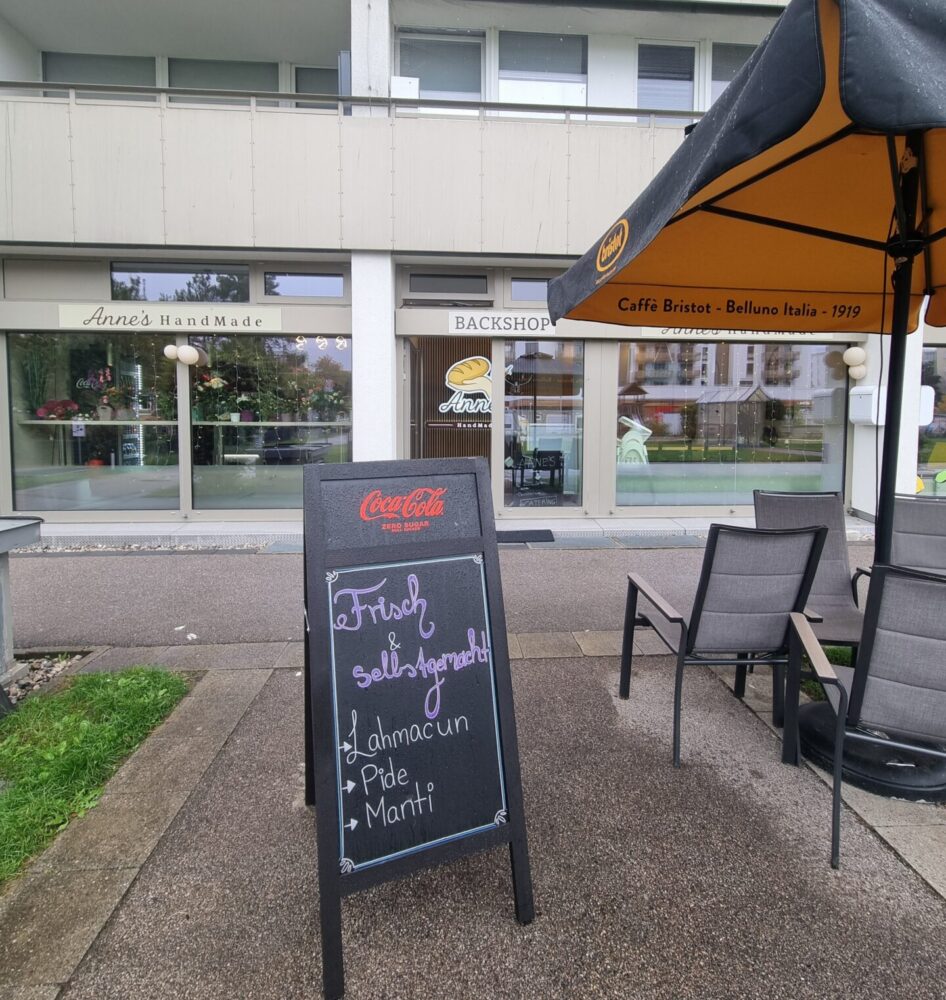 Anne's HandMade
BACKSHOP
Anne's HandMade
Anne's
HandMade
ANNE'S
CATERING
bristot
Caffè Bristot - Belluno Italia - 1919
Coca-Cola
ZERO SUGAR
Frisch
&
selbstgemacht
→ Lahmacun
→ Pide
→ Manti